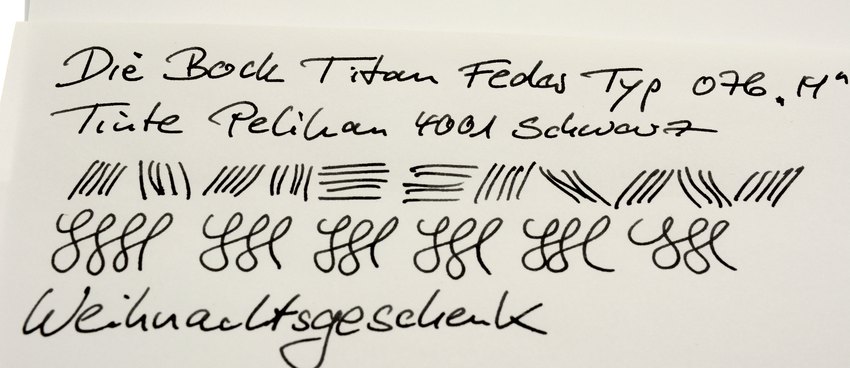 Die Bock Titan Feder Typ 076 „M“
Tinte Pelikan 4001 Schwarz
Weihnachtsgeschenk